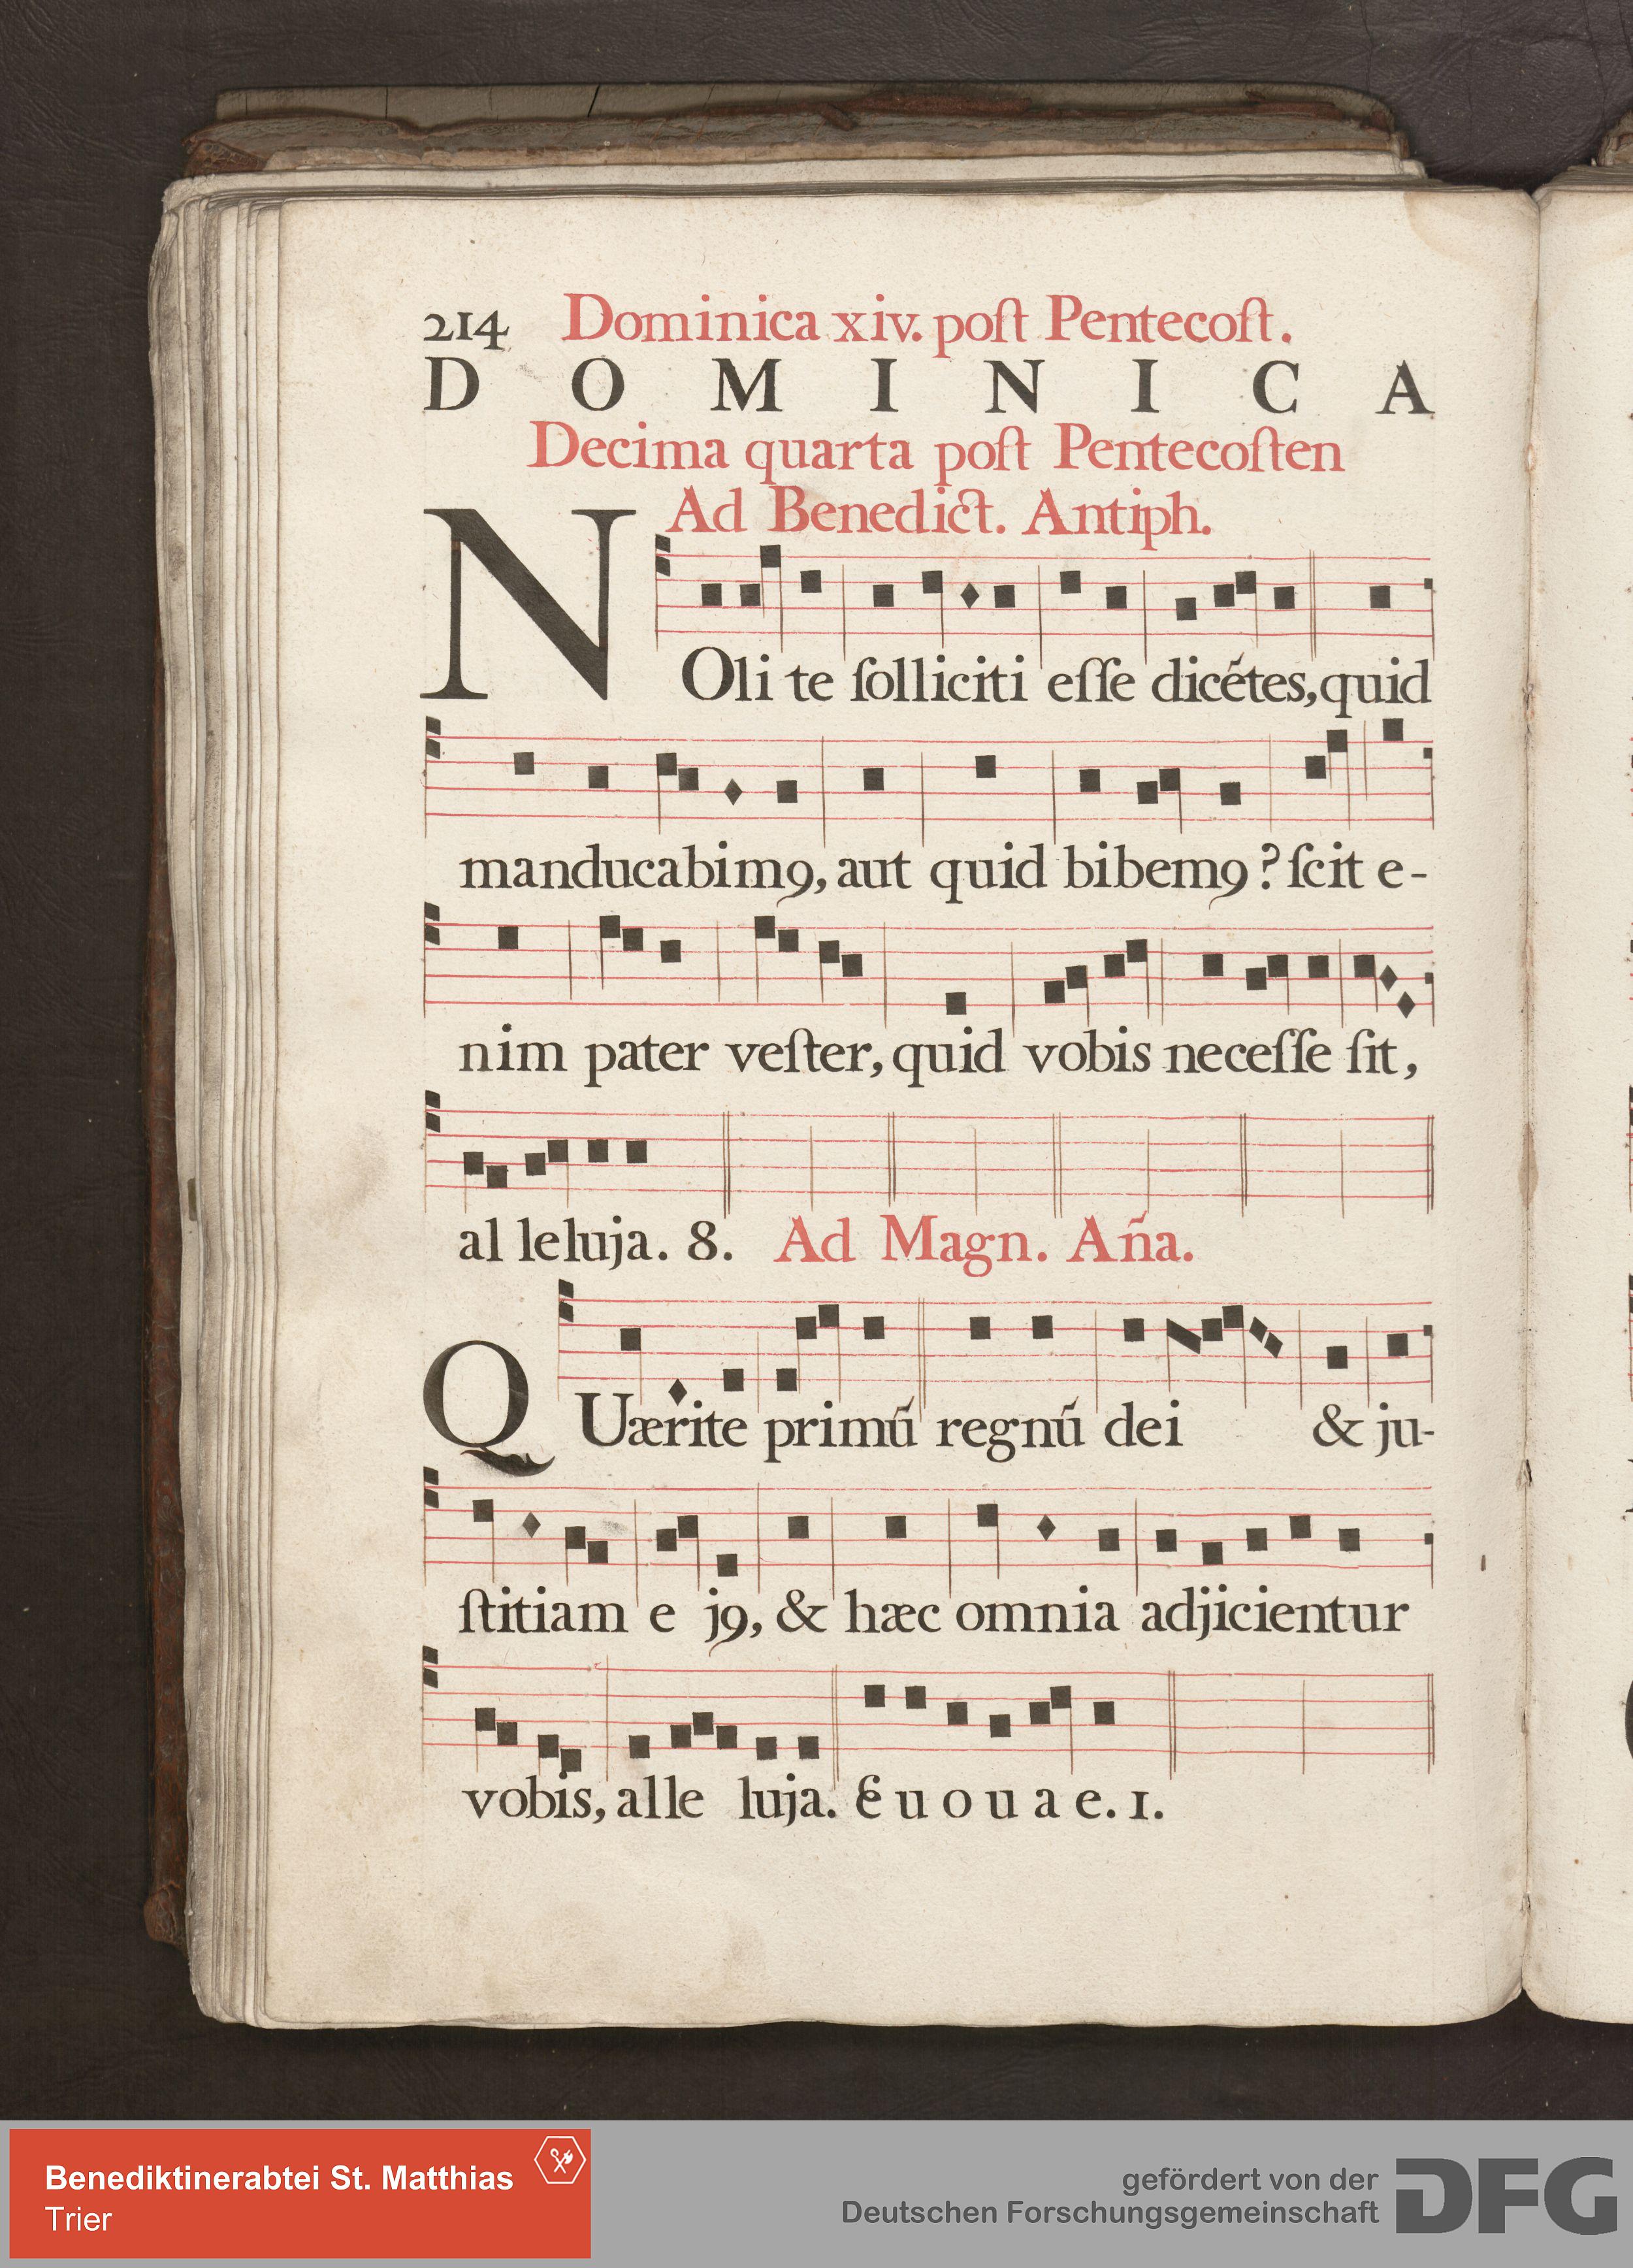 214 Dominica xiv. poſt Pentecoſt.
D O M I N I C A
Decima quarta poſt Pentecoſten
Ad Benedict. Antiph.
NOli te ſolliciti eſſe dicẽtes, quid
manducabimꝯ, aut quid bibemꝯ? ſcit e-
nim pater veſter, quid vobis neceſſe ſit,
al leluja. 8. Ad Magn. Aña.
QUærite primũ regnũ dei & ju-
ſtitiam e jꝯ, & hæc omnia adjicientur
vobis, alle luja. E u o u a e. 1.
Benediktinerabtei St. Matthias
Trier
gefördert von der
Deutschen Forschungsgemeinschaft
DFG